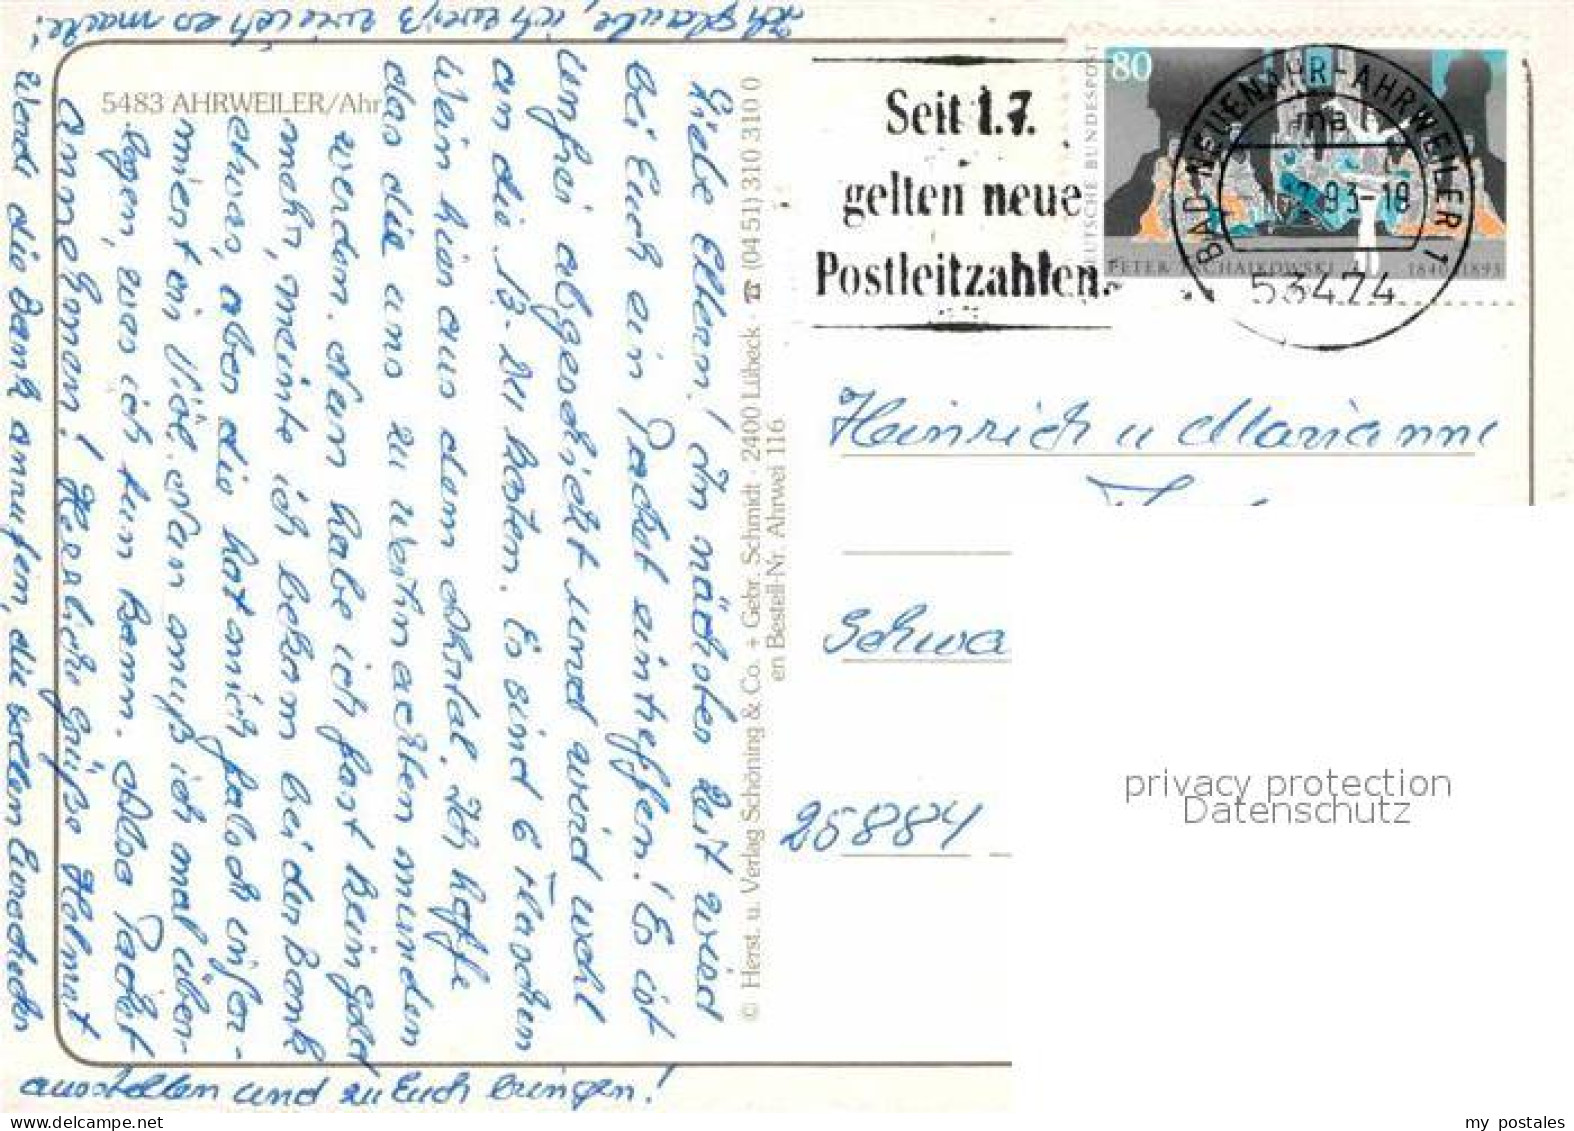 5483 AHRWEILER/Ahr
Liebe Eltern! In nächster Zeit wird
bei Euch ein Packet eintreffen! Es ist
unfrei abgeschickt und wird wohl
um die 13.- DM kosten. Es sind 6 Flaschen
Wein hier aus dem Ahrtal. Ich hoffe
das die uns zu Weihnachten munden
werden. Nun habe ich fast kein Geld
mehr, meinte ich bekom bei der Bank
etwas, aber die hat mich falsch infor-
miert ein Viel. Nun muß ich mal über-
legen, was ich tun kann. Also Packet
annehman! Herzliche Grüße Helmut
Wenn die Bank anrufen, die sollen Eurocheck
ausstellen und zu Euch bringen!
Ich glaube, ich weiß wie ich es mache!
© Herst. u. Verlag Schöning & Co. + Gebr. Schmidt · 2400 Lübeck · ☎ (0451) 310 310 0
en Bestell-Nr. Ahrwei 116
Seit 1.7.
gelten neue
Postleitzahlen
80
DEUTSCHE BUNDESPOST
PETER TSCHAIKOWSKI 1840 1893
BAD NEUENAHR-AHRWEILER 1
ma
93-18
53474
Heinrich u Marianne
Schwa
25884
privacy protection
Datenschutz
my postales